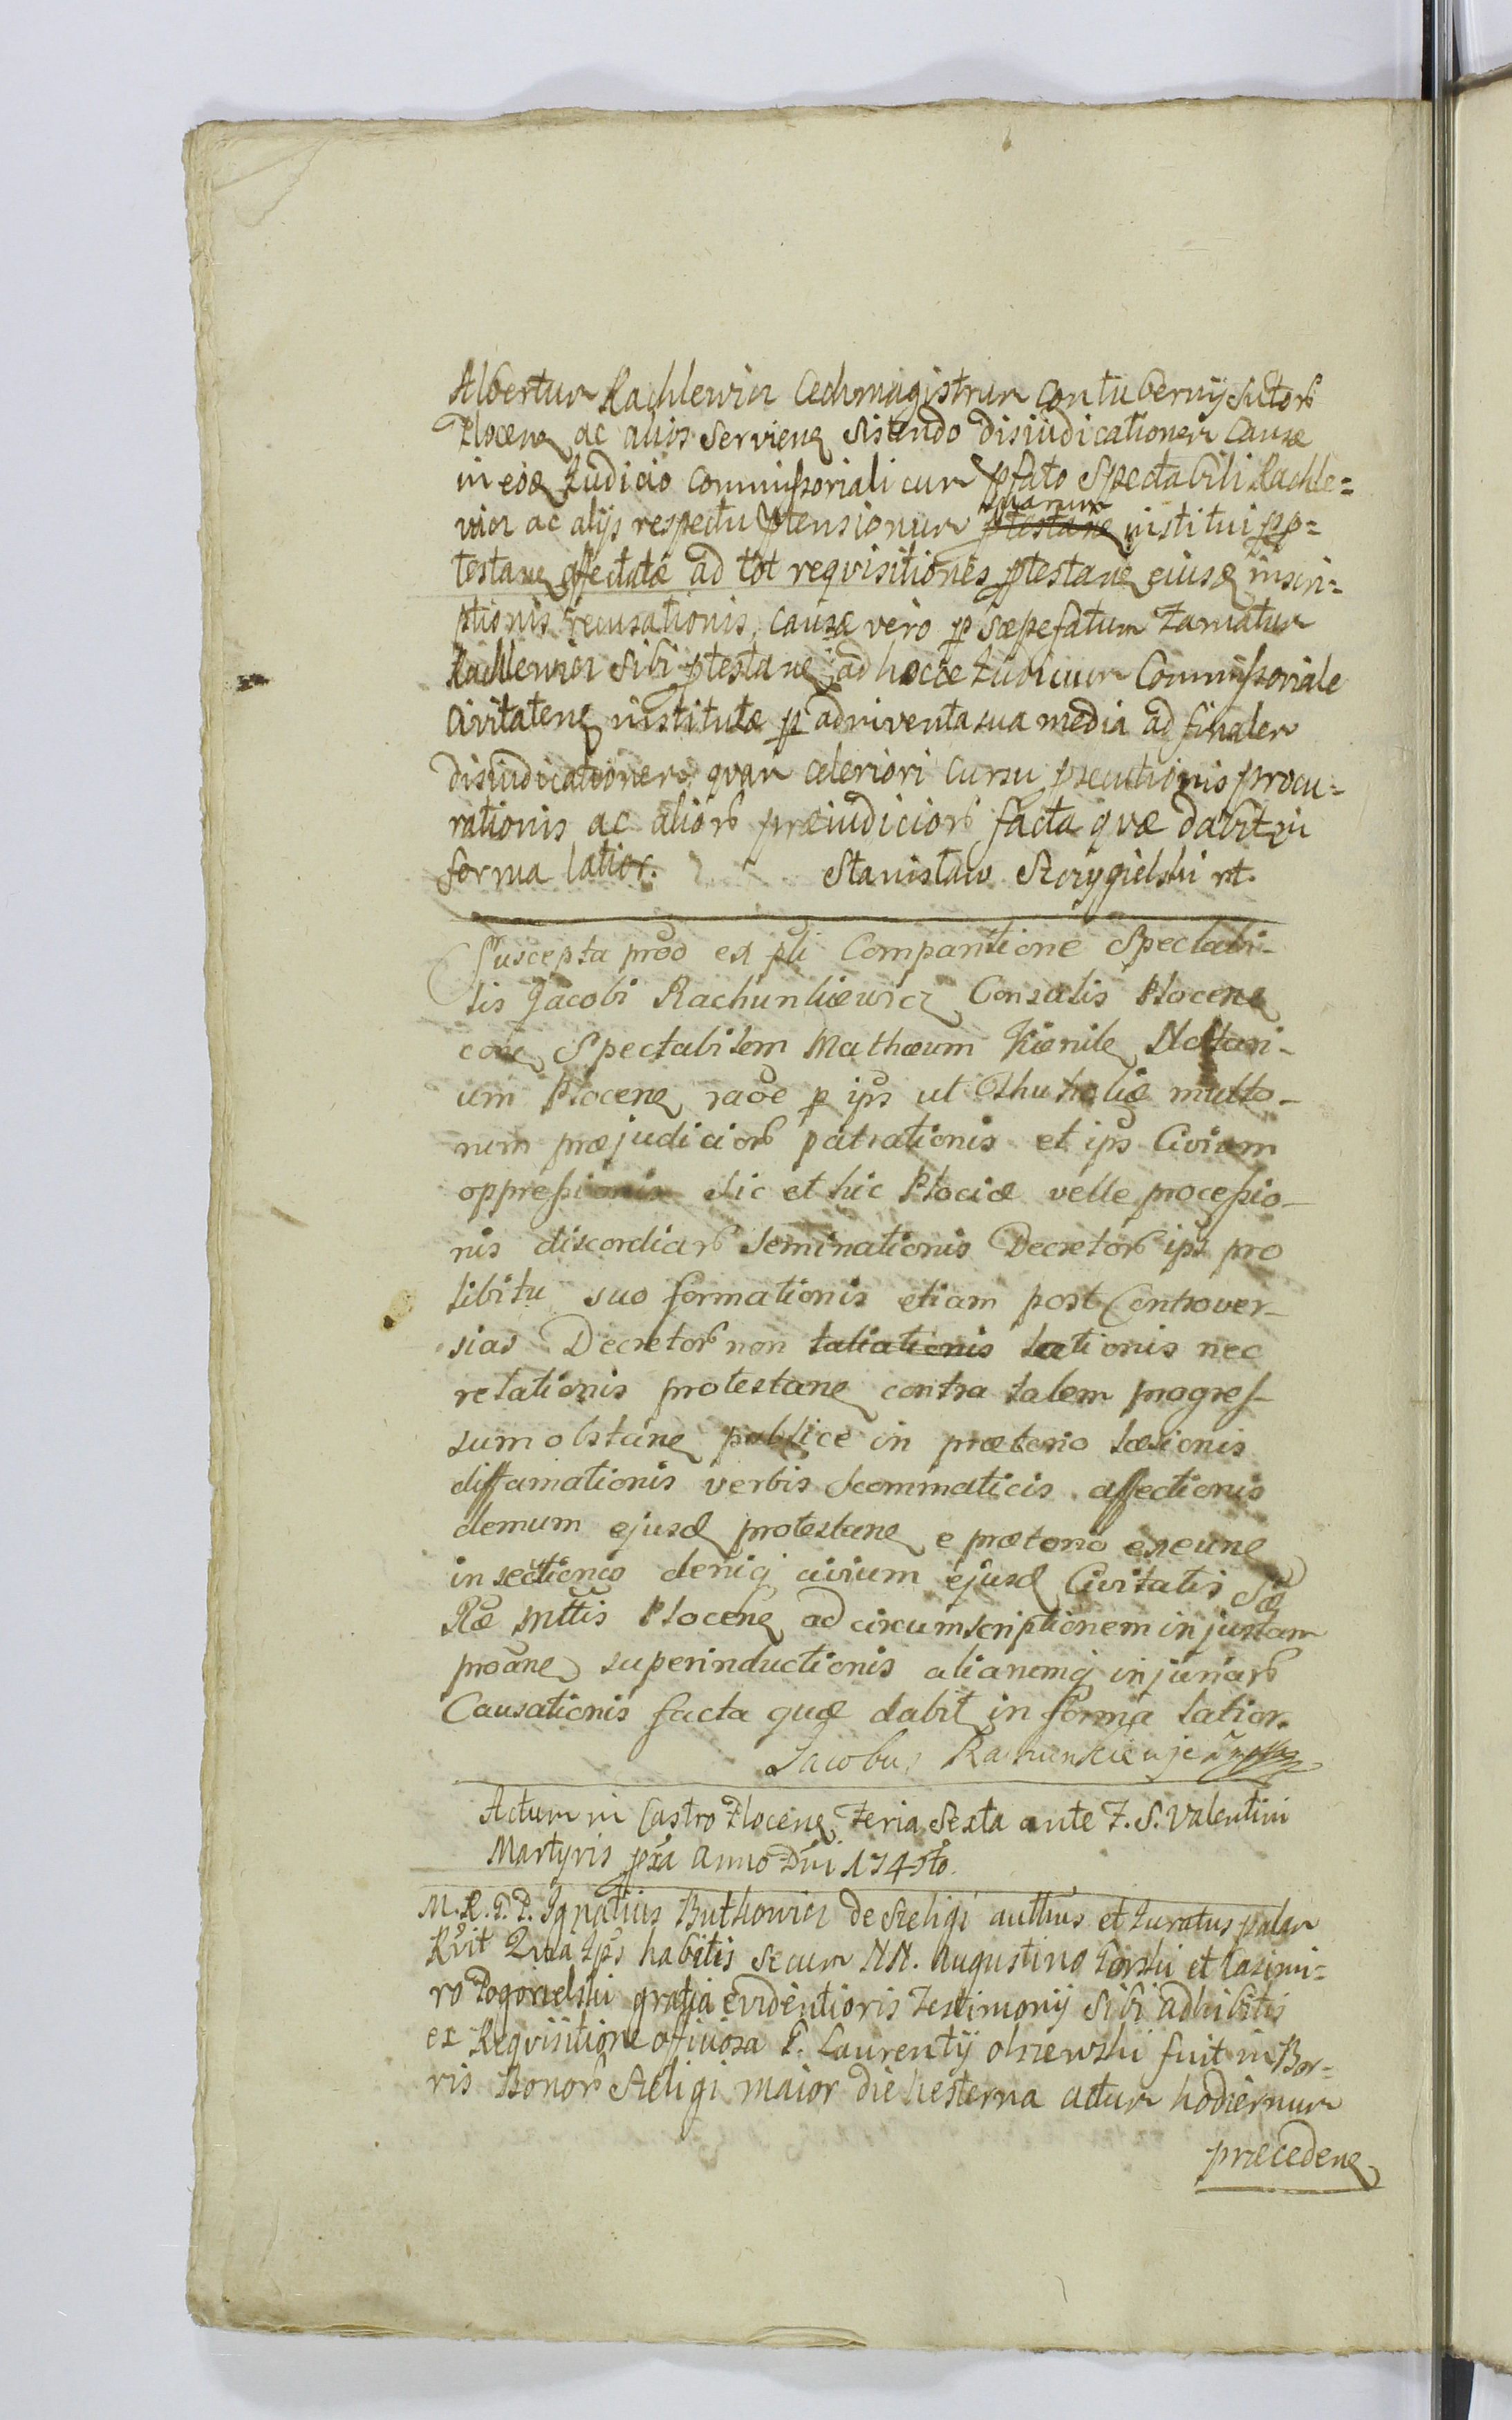 Albertum Rachlewicz Cechmagistrum Contubernij Sutorb
Plocen ac alios Servien Sistendo disiudicationem Causæ
in eoд Judicio Commissoriali cum pfato Spectabili Rachle=
wicz ac alijs respectu ptensionum suarum institui p p=
testane affectatæ ad tot reqvisitiones ptestane eiusд inscri=
ptionis recusationis, causæ vero p sæpefatum Famatum
Rachlewicz Sibi ptestane ad hocce Judicium Commissoriale
Civitatene institutæ p adinventa sua media ad finalem
disiudicationem qvam celeriori cursu psecutionis procu=
rationis ac aliorb præiudiciorb facta qvæ dabit in
forma latior. Stanisław Strzygielski rt.
Suscepta prod ex pti Comparitione Spectabi-
lis Jacobi Rachunkiewicz Consulis Plocene
cone Spectabilem Mathæum Kienile Notari-
um Plocene raoe p ips ut Thuholiæ multo-
rum præjudiciorb patrationis et ips Civium
oppressionis sic et hic Plociæ velle processio-
nis discordiarb seminationis Decretorb ips pro
libitu suo formationis etiam post Controver-
sias Decretorb non taliationis lationis nec
relationis protestane contra talem progres-
sum obstane publice in prætorio læsionis
diffamationis verbis scommaticis affectionis
demum ejusd protestane e prætorio exeune
insectionis deniq civium ejusd Civitatis Sæ
Ræ Mttis Plocene ad circumscriptionem injustam
proane superinductionis aliarumq injuriarb
Causationis facta quæ dabit in forma latior.
Jacobus Rachunkiewic
Actum in Castro Plocene Feria Sexta ante F. S. Valentini
Martyris pxa Anno Dni 1745to.
M. R. P. P. Ignatius Buthowicz de Szeligi autthus et Juratus palam
Rvit Quia Ips habitis secum NN. Augustino Gorski et Casimi=
ro Pogorzelski gratia evidentioris Testimonij Sibi adhibitis
ex Reqvisitione officiosa G. Laurentij Olszewski fuit in Bo=
nis Bonorb Szeligi maior die hesterna actum hodiernum
præcedene